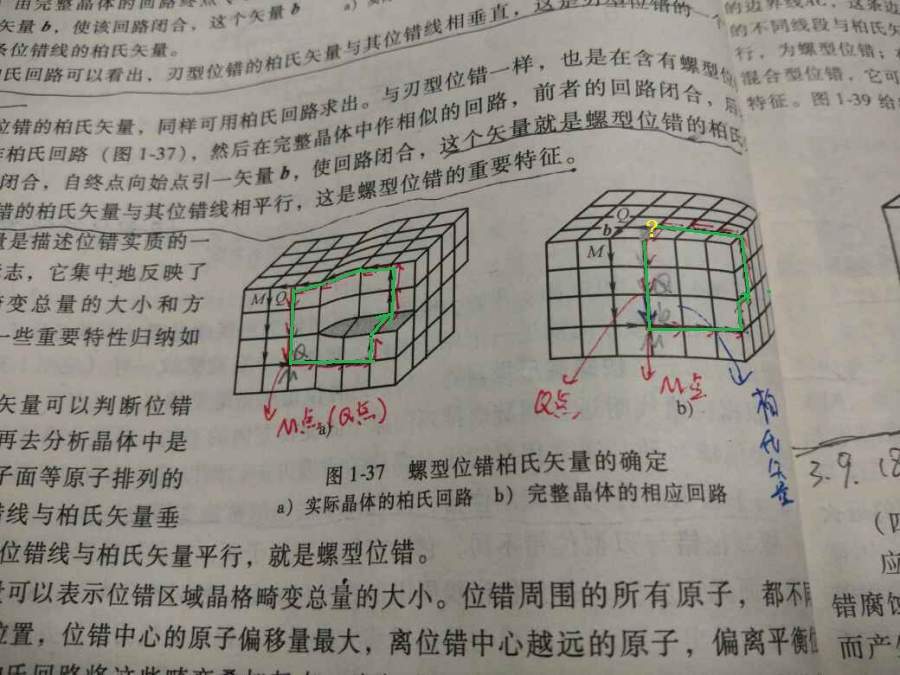 由完整晶体的回路终点
矢量b，使该回路闭合，这个矢量b
条位错线的柏氏矢量。
氏回路可以看出，刃型位错的柏氏矢量与其位错线相垂直，这是刃型位错的一个
位错的柏氏矢量，同样可用柏氏回路求出。与刃型位错一样，也是在含有螺型位
作柏氏回路（图1-37），然后在完整晶体中作相似的回路，前者的回路闭合，后
闭合，自终点向始点引一矢量b，使回路闭合，这个矢量就是螺型位错的柏氏
错的柏氏矢量与其位错线相平行，这是螺型位错的重要特征。
量是描述位错实质的一
志，它集中地反映了
畸变总量的大小和方
一些重要特性归纳如
矢量可以判断位错
再去分析晶体中是
子面等原子排列的
错线与柏氏矢量垂
位错线与柏氏矢量平行，就是螺型位错。
量可以表示位错区域晶格畸变总量的大小。位错周围的所有原子，都不同
位置，位错中心的原子偏移量最大，离位错中心越远的原子，偏离平衡位
M Q
Q
M
M点（Q点）
a)
Q
b
?
M
Q
b
M
Q点
M点
b)
柏氏矢量
图1-37 螺型位错柏氏矢量的确定
a）实际晶体的柏氏回路 b）完整晶体的相应回路
的边界线AC，这条边
的不同线段与柏氏矢
行，为螺型位错；
混合型位错，它可
特征。图1-39给
3.9.(8
（四
应
错腐蚀
而产生